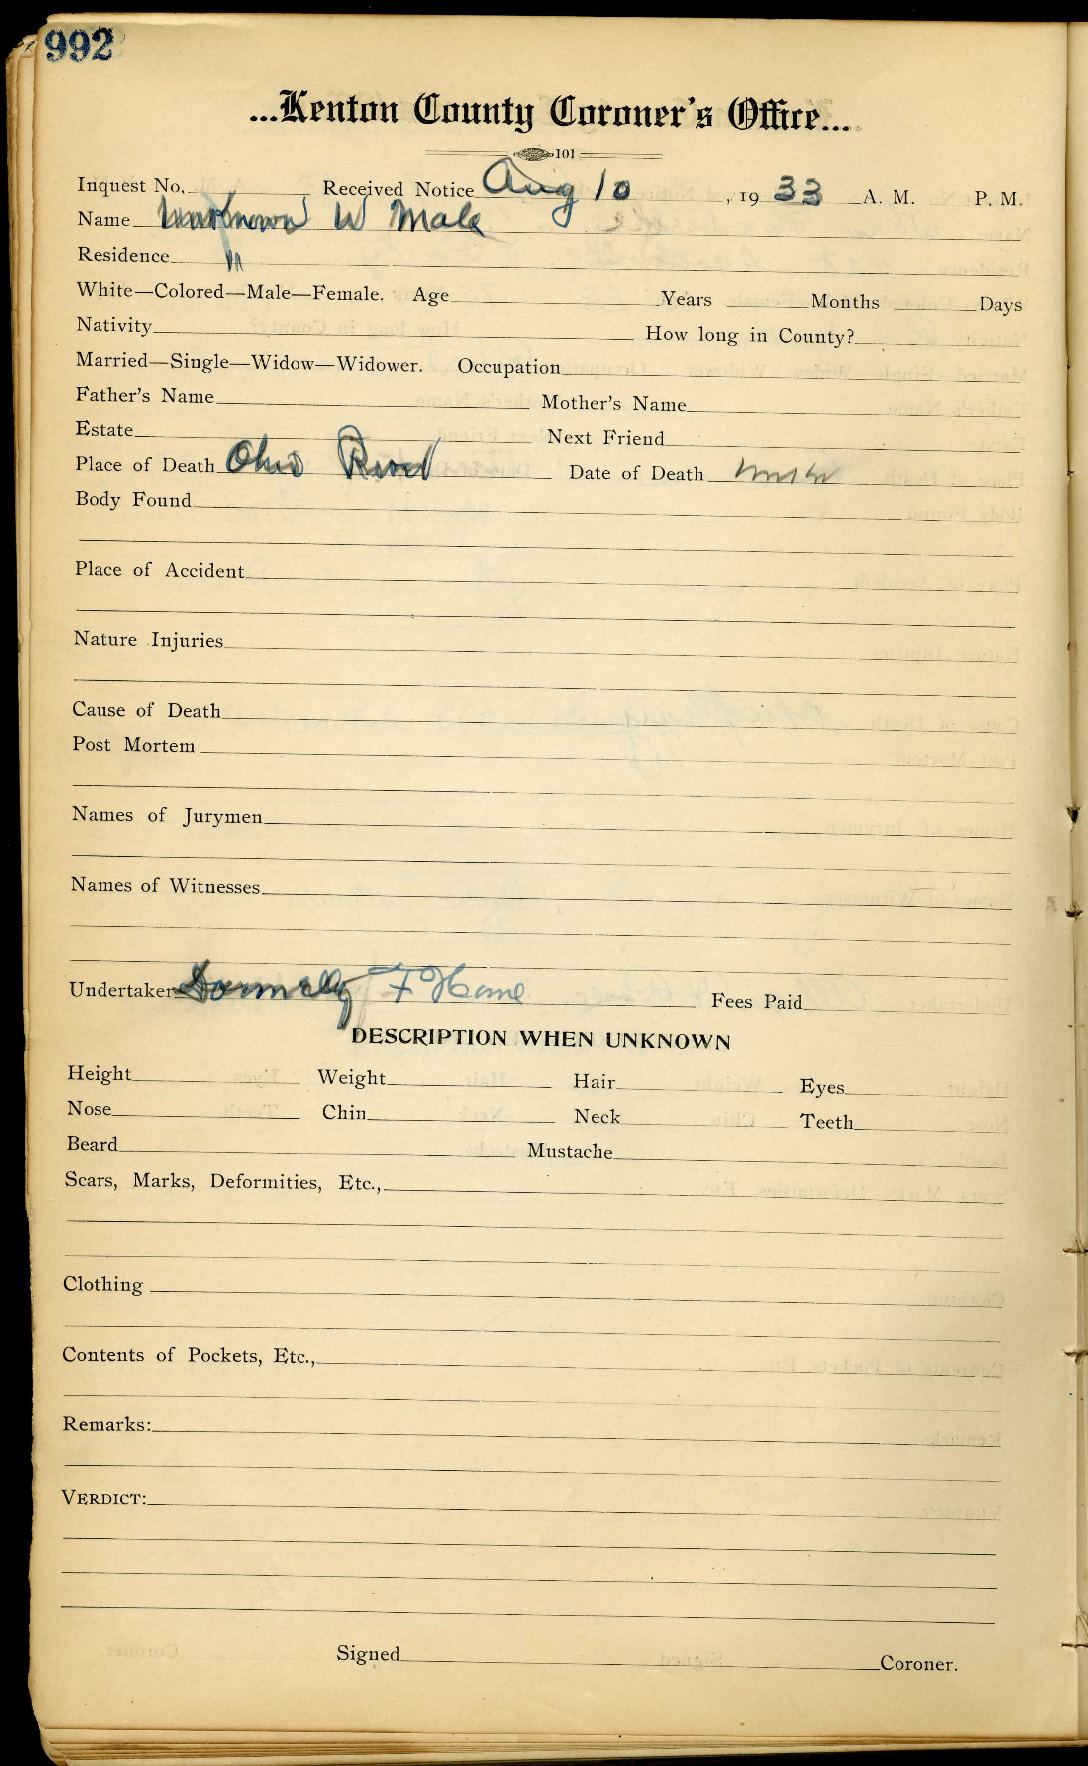 992
...Kenton County Coroner's Office...
101
Inquest No. Received Notice Aug 10, 1933 A. M. P. M.
Name Unknown W Male
Residence
White—Colored—Male—Female. Age Years Months Days
Nativity How long in County?
Married—Single—Widow—Widower. Occupation
Father's Name Mother's Name
Estate Next Friend
Place of Death Ohio River Date of Death
Body Found
Place of Accident
Nature Injuries
Cause of Death
Post Mortem
Names of Jurymen
Names of Witnesses
Undertaker Donnelly F Home Fees Paid
DESCRIPTION WHEN UNKNOWN
Height Weight Hair Eyes
Nose Chin Neck Teeth
Beard Mustache
Scars, Marks, Deformities, Etc.,
Clothing
Contents of Pockets, Etc.,
Remarks:
VERDICT:
Signed Coroner.